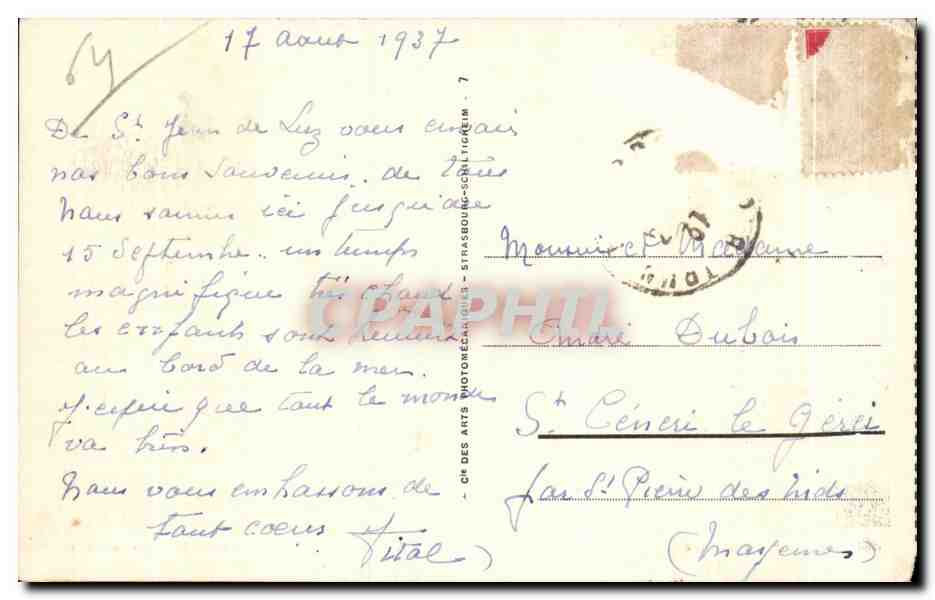 64
17 aout 1937
De St Jean de Luz vous envois
nos bons souvenirs de tous
Nous sommes ici jusqu'au
15 Septembre un temps
magnifique très chaud
les enfants sont heureux
au bord de la mer.
J'espère que tout le monde
va bien.
Nous vous embrassons de
tout coeur Vital
- Cie DES ARTS PHOTOMÉCANIQUES - STRASBOURG-SCHILTIGHEIM - 7
Monsieur et Madame
André Dubois
St Céneri le Gérei
par St Pierre des Nids
(Mayenne)
CPAPHIL